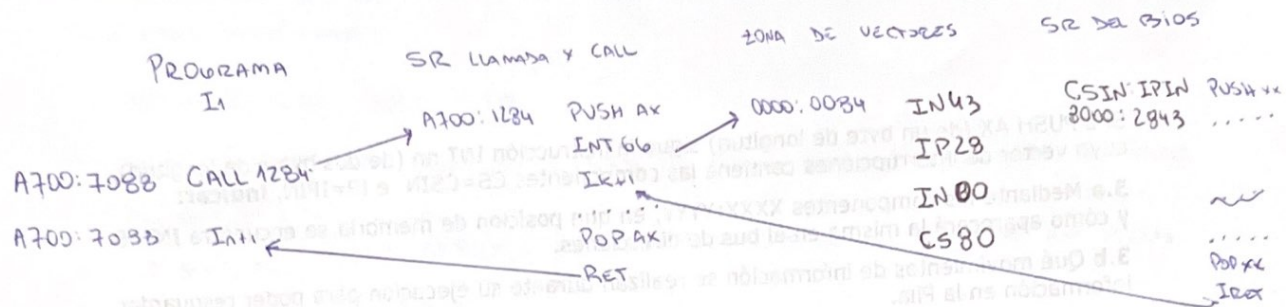 PROGRAMA
I1
A700:7088 CALL 1284
A700:708B In+1
SR LLAMADA Y CALL
A700:1284 PUSH AX
INT 66
IK+1
.....
POP AX
RET
ZONA DE VECTORES
0000:0084 IN43
IP28
IN00
CS80
SR DEL BIOS
CSIN:IPIN PUSH XX
8000:2843 .....
.....
POP XX
IRET